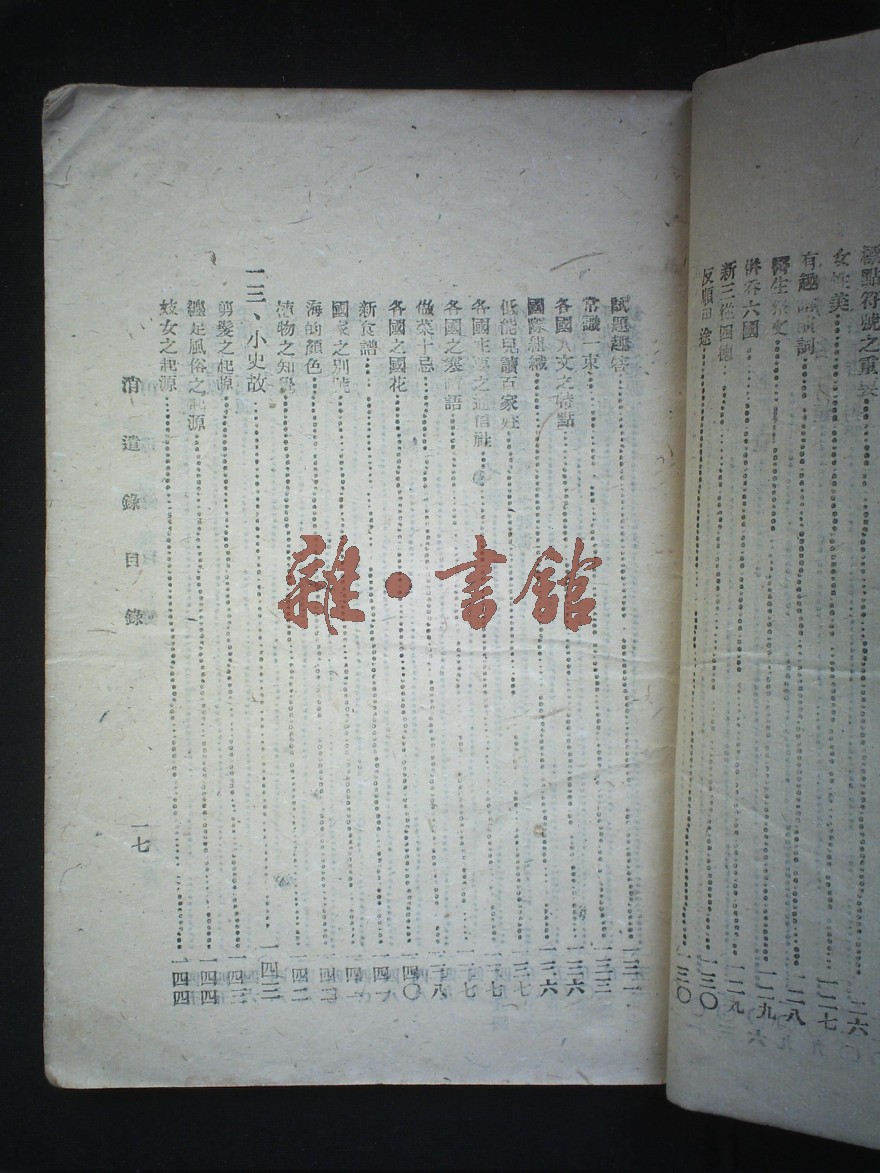 標點符號之重要 一二六
女性美 一二七
有趣 詞 一二八
醫生祭文 一二九
併吞六國 一二九
新三從四德 一三〇
反順 途 一三〇
試題趣答 一三二
常識一束 一三三
各國人文之特點 一三六
國際組織 一三六
低能兒讀百家姓 一三七
各國 之通信社 一三七
各國之 語 一三七
做菜十忌 一三八
各國之國花 一四〇
新食譜 一四
國家之別號 一四
海的顏色 一四二
植物之知覺 一四二
一三、小史故 一四三
剪髮之起源 一四三
纏足風俗之起源 一四四
妓女之起源 一四四
消遣錄目錄
一七
雜·書館